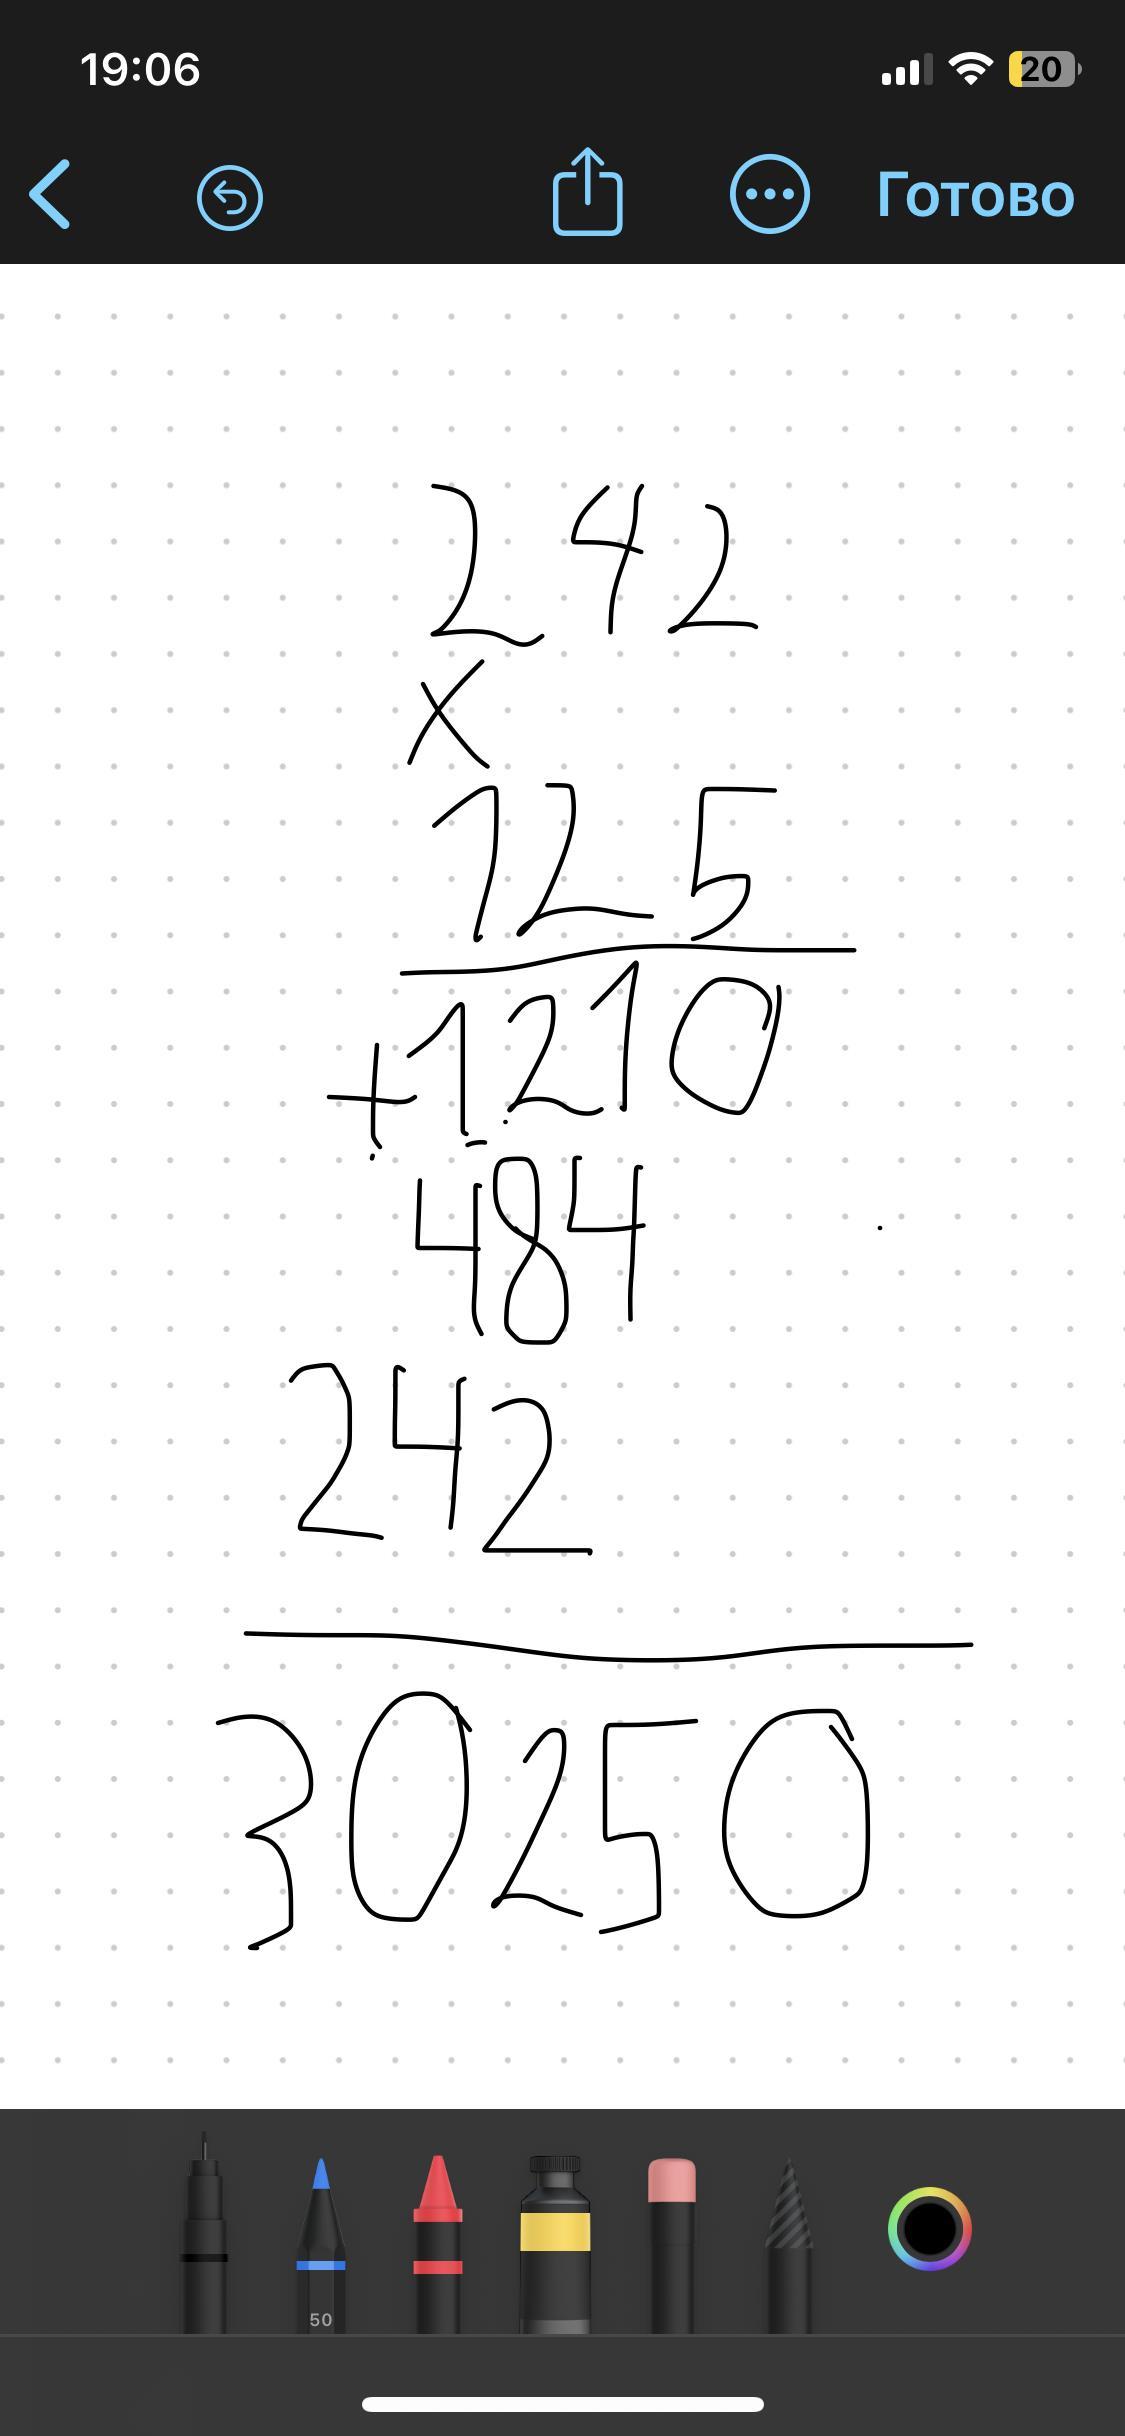 19:06
20
Готово
242
×
125
+1210
484
242
30250
50